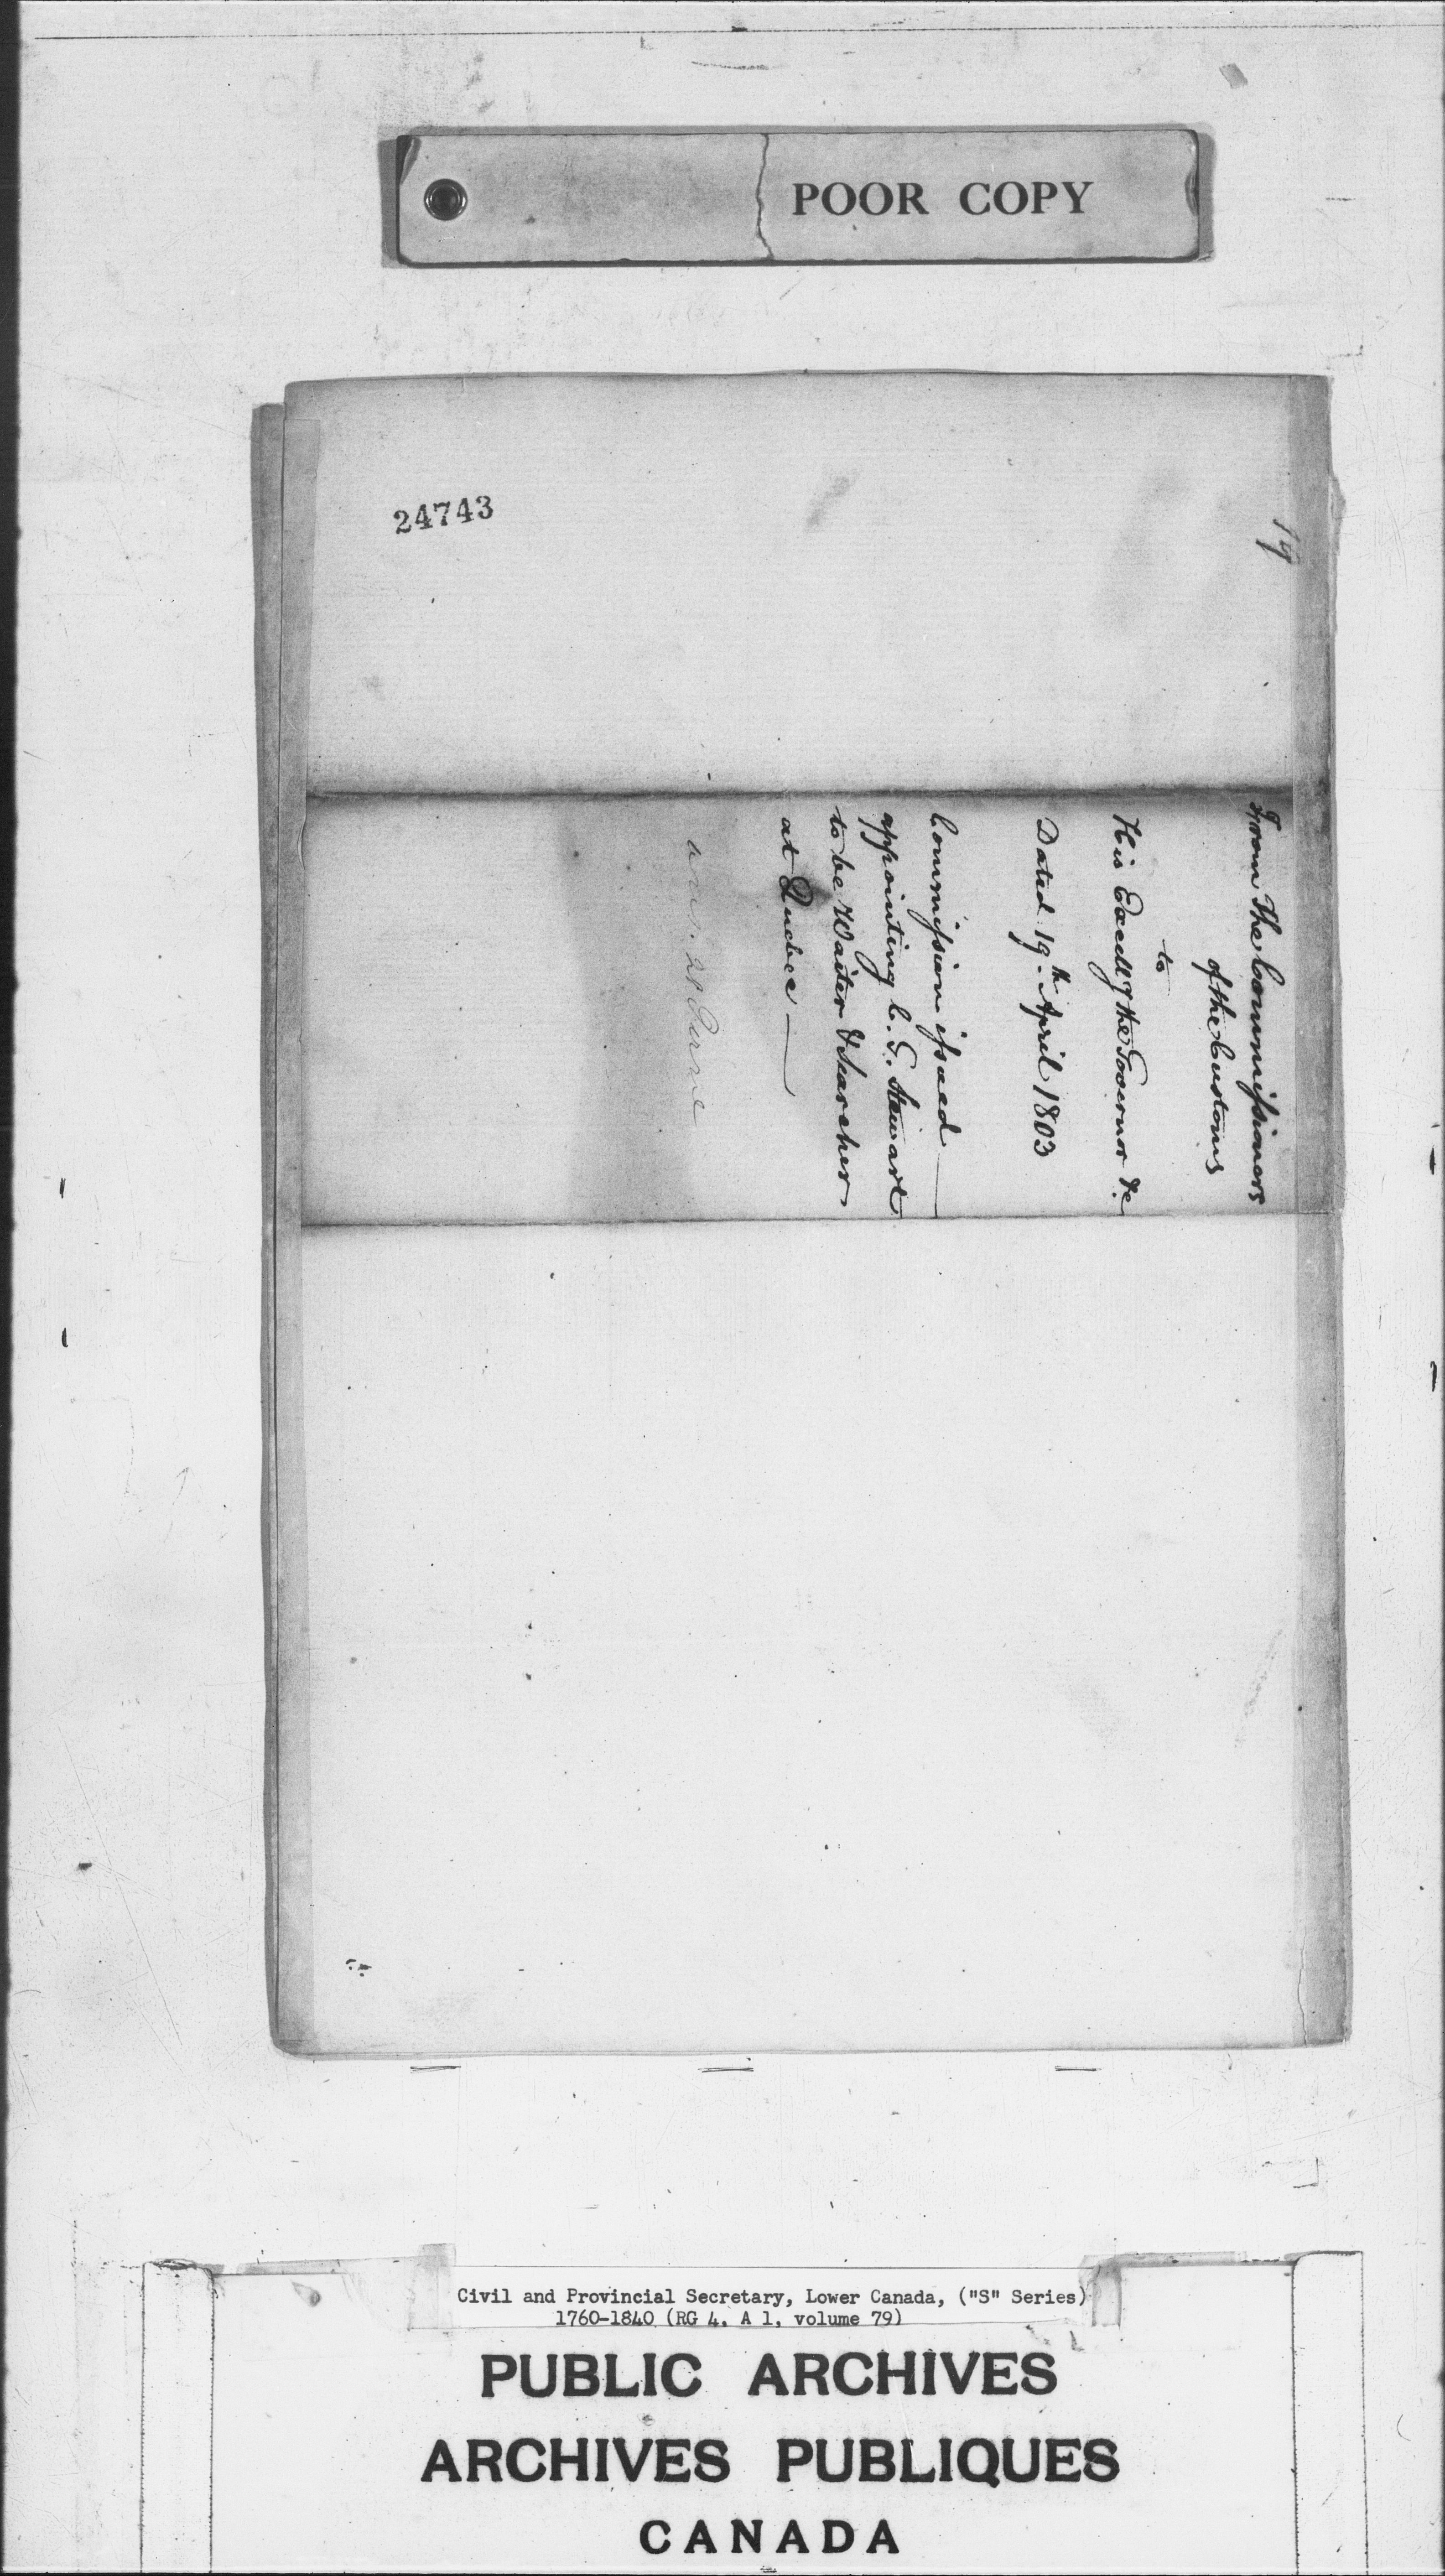 POOR COPY
24743
19
From The Commissioners
of the Customs
to
His Excelly the Governor &c
Dated 19th April 1803
Commission issued
appointing C. G. Stewart
to be Waiter & Searcher
at Quebec —
ans. 21 June
Civil and Provincial Secretary, Lower Canada, ("S" Series)
1760-1840 (RG 4, A 1, volume 79)
PUBLIC ARCHIVES
ARCHIVES PUBLIQUES
CANADA